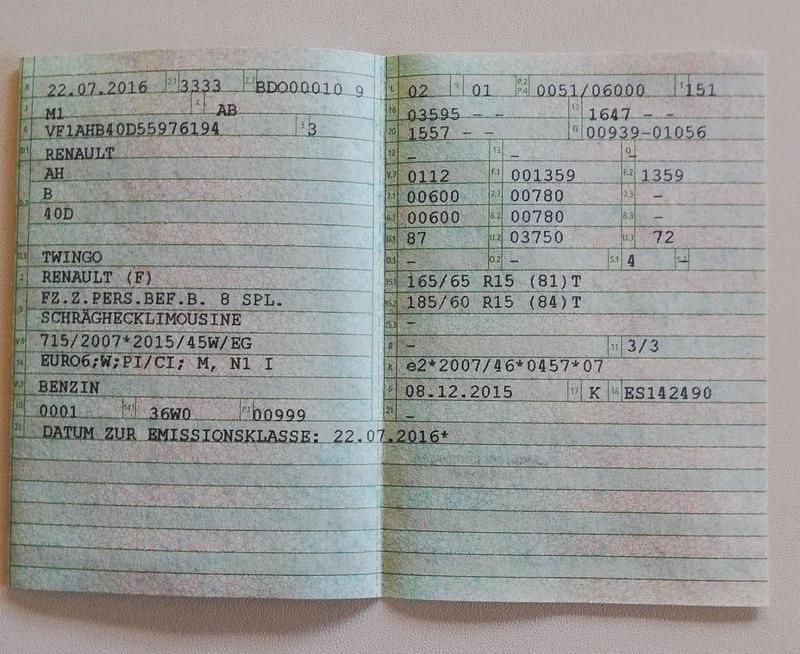 B 22.07.2016 2.1 3333 2.2 BDO00010 9
J M1 4 AB
E VF1AHB40D55976194 3 3
D.1 RENAULT
AH
D.2 B
40D
D.3 TWINGO
2 RENAULT (F)
5 FZ.Z.PERS.BEF.B. 8 SPL.
SCHRÄGHECKLIMOUSINE
V.9 715/2007*2015/45W/EG
14 EURO6;W;PI/CI; M, N1 I
P.3 BENZIN
10 0001 14.1 36W0 P.1 00999
22 DATUM ZUR EMISSIONSKLASSE: 22.07.2016*
L 02 9 01 P.2 P.4 0051/06000 T 151
18 03595 - - 19 1647 - -
20 1557 - - G 00939-01056
12 - 13 - Q -
V.7 0112 F.1 001359 F.2 1359
7.1 00600 7.2 00780 7.3 -
8.1 00600 8.2 00780 8.3 -
U.1 87 U.2 03750 U.3 72
O.1 - O.2 - S.1 4 S.2 -
15.1 165/65 R15 (81)T
15.2 185/60 R15 (84)T
15.3 -
R - 11 3/3
K e2*2007/46*0457*07
6 08.12.2015 17 K 16 ES142490
21 -